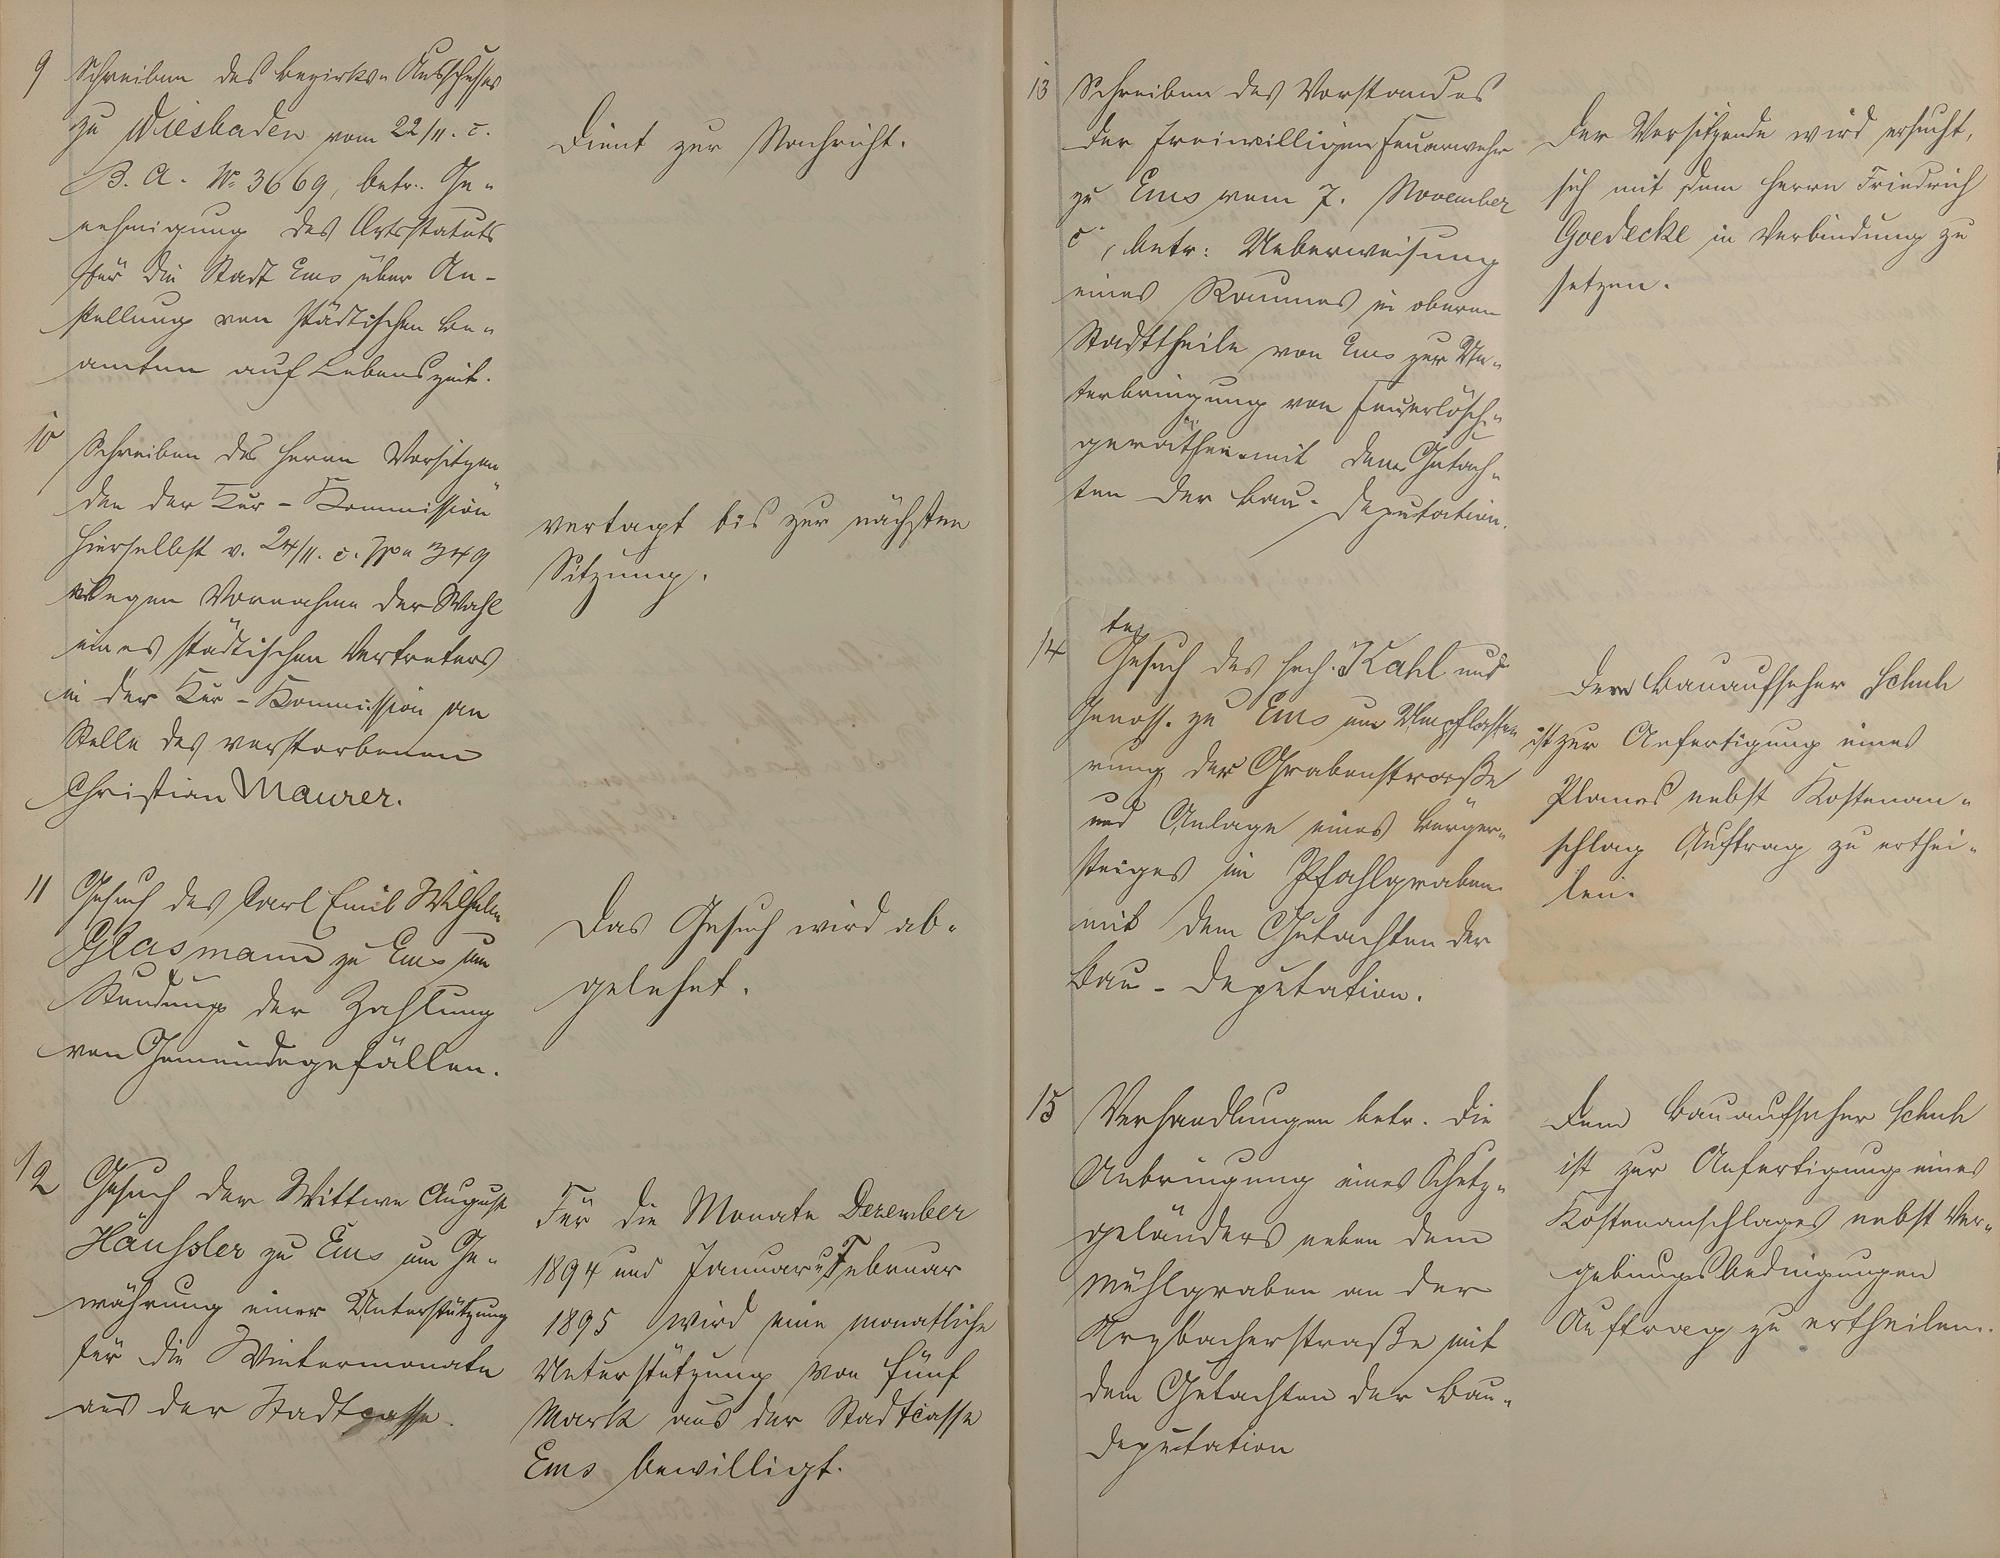 9 Schreiben des Bezirks-Ausschusses
zu Wiesbaden vom 22/11. c.
B. A. No 3669, betr. Ge-
nehmigung des Ortsstatuts
für die Stadt Ems über An-
stellung von städtischen Be-
amten auf Lebenszeit.
Dient zur Nachricht.
10 Schreiben des Herrn Vorsitzen-
den der Kur-Kommission
hierselbst v. 24/11. c. 349
wegen Vornahme der Wahl
eines städtischen Vertreters
in der Kur-Kommission an
Stelle des verstorbenen
Christian Maurer.
vertagt bis zur nächsten
Sitzung.
11 Gesuch des Carl Emil Wilhelm
Glasmann zu Ems um
Stundung der Zahlung
von Gemeindegefällen.
Das Gesuch wird ab-
gelehnt.
12 Gesuch der Wittwe August
Häussler zu Ems um Ge-
währung einer Unterstützung
für die Wintermonate
aus der Stadtcasse.
Für die Monate Dezember
1894 und Januar u. Februar
1895 wird eine monatliche
Unterstützung von fünf
Mark aus der Stadtcasse
Ems bewilligt.
13 Schreiben des Vorstandes
der freiwilligen Feuerwehr
zu Ems vom 7. November
c., betr: Ueberweisung
eines Raumes in oberen
Stadttheile von Ems zur Un-
terbringung von Feuerlösch-
geräthen mit dem Gutach-
ten der Bau-Deputation.
Der Vorsitzende wird ersucht,
sich mit dem Herrn Friedrich
Goedecke in Verbindung zu
setzen.
14 Gesuch des Kahl und
Genoss. zu Ems um Umpflaste-
rung der Grabenstraße
und Anlage eines Bürger-
steiges im Pfahlgraben
mit dem Gutachten der
Bau-Deputation.
Dem Bauaufseher Schuh
ist zur Anfertigung eines
Planes nebst Kostenan-
schlag Auftrag zu erthei-
len.
15 Verhandlungen betr. die
Anbringung eines Schutz-
geländers neben dem
Mühlgraben an der
Arzbacherstraße mit
dem Gutachten der Bau-
Deputation
Dem Bauaufseher Schuh
ist zur Anfertigung eines
Kostenanschlages nebst Ver-
gebungsbedingungen
Auftrag zu ertheilen.